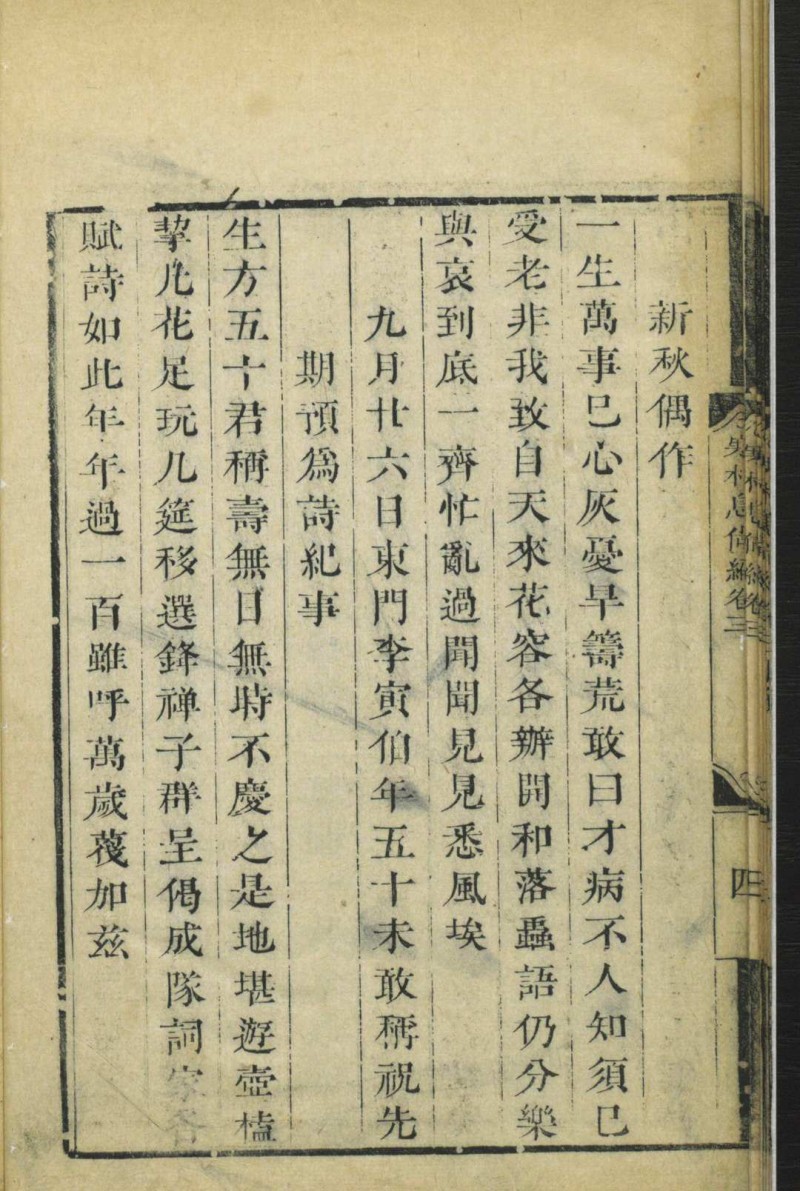 新秋偶作
一生萬事巳心灰憂旱籌荒敢曰才病不人知須巳
受老非我致自天來花容各辦開和落蟲語仍分樂
與哀到底一齊忙亂過聞聞見見悉風埃
九月廿六日東門李寅伯年五十未敢稱祝先
期預爲詩紀事
生方五十君稱壽無日無時不慶之是地堪遊壺榼
挈凣花足玩几筵移選鋒禅子群呈偈成隊詞家各
賦詩如此年年過一百雖呼萬歲蔑加玆
息倚絲卷三
四